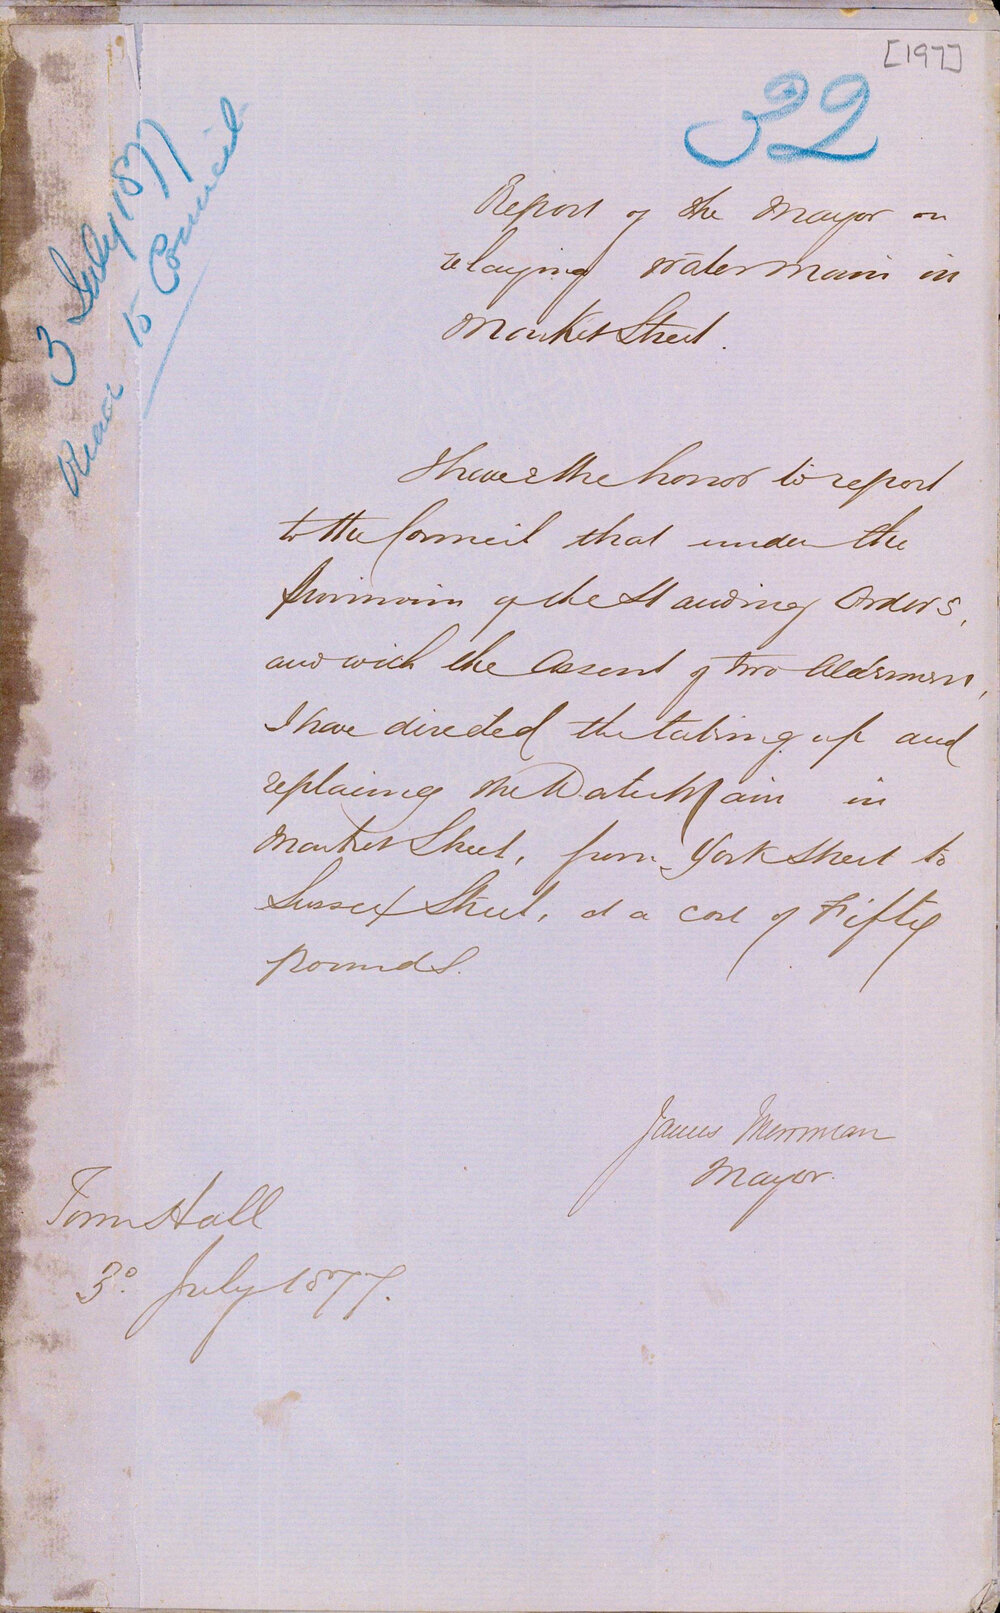 [197]
32
3 July 1877
Read to Council
Report of the Mayor on
relaying Water Main in
Market Street.
I have the honor to report
to the Council that under the
provisions of the Standing Orders,
and with the Assent of two Aldermen,
I have directed the taking up and
replacing the Water Main in
Market Street, from York Street to
Sussex Street, at a cost of Fifty
pounds.
James Merriman
Mayor.
Town Hall
3º. July 1877.